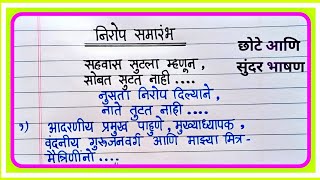 निरोप समारंभ
सहवास सुटला म्हणून,
सोबत सुटत नाही ....
नुसता निरोप दिल्याने,
नाते तुटत नाही ....
१) आदरणीय प्रमुख पाहुणे, मुख्याध्यापक,
वंदनीय गुरुजनवर्ग आणि माझ्या मित्र-
मैत्रिणींनो ....
छोटे आणि
सुंदर भाषण